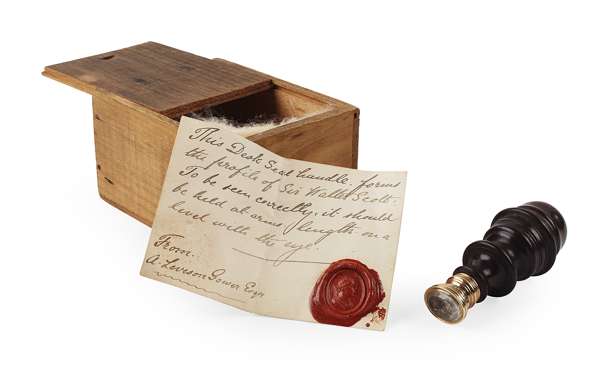 This Desk Seal handle, forms
the profile of Sir Walter Scott.
To be seen correctly, it should
be held at arms length on a
level with the eye.
From.
A. Leveson Gower Esqr